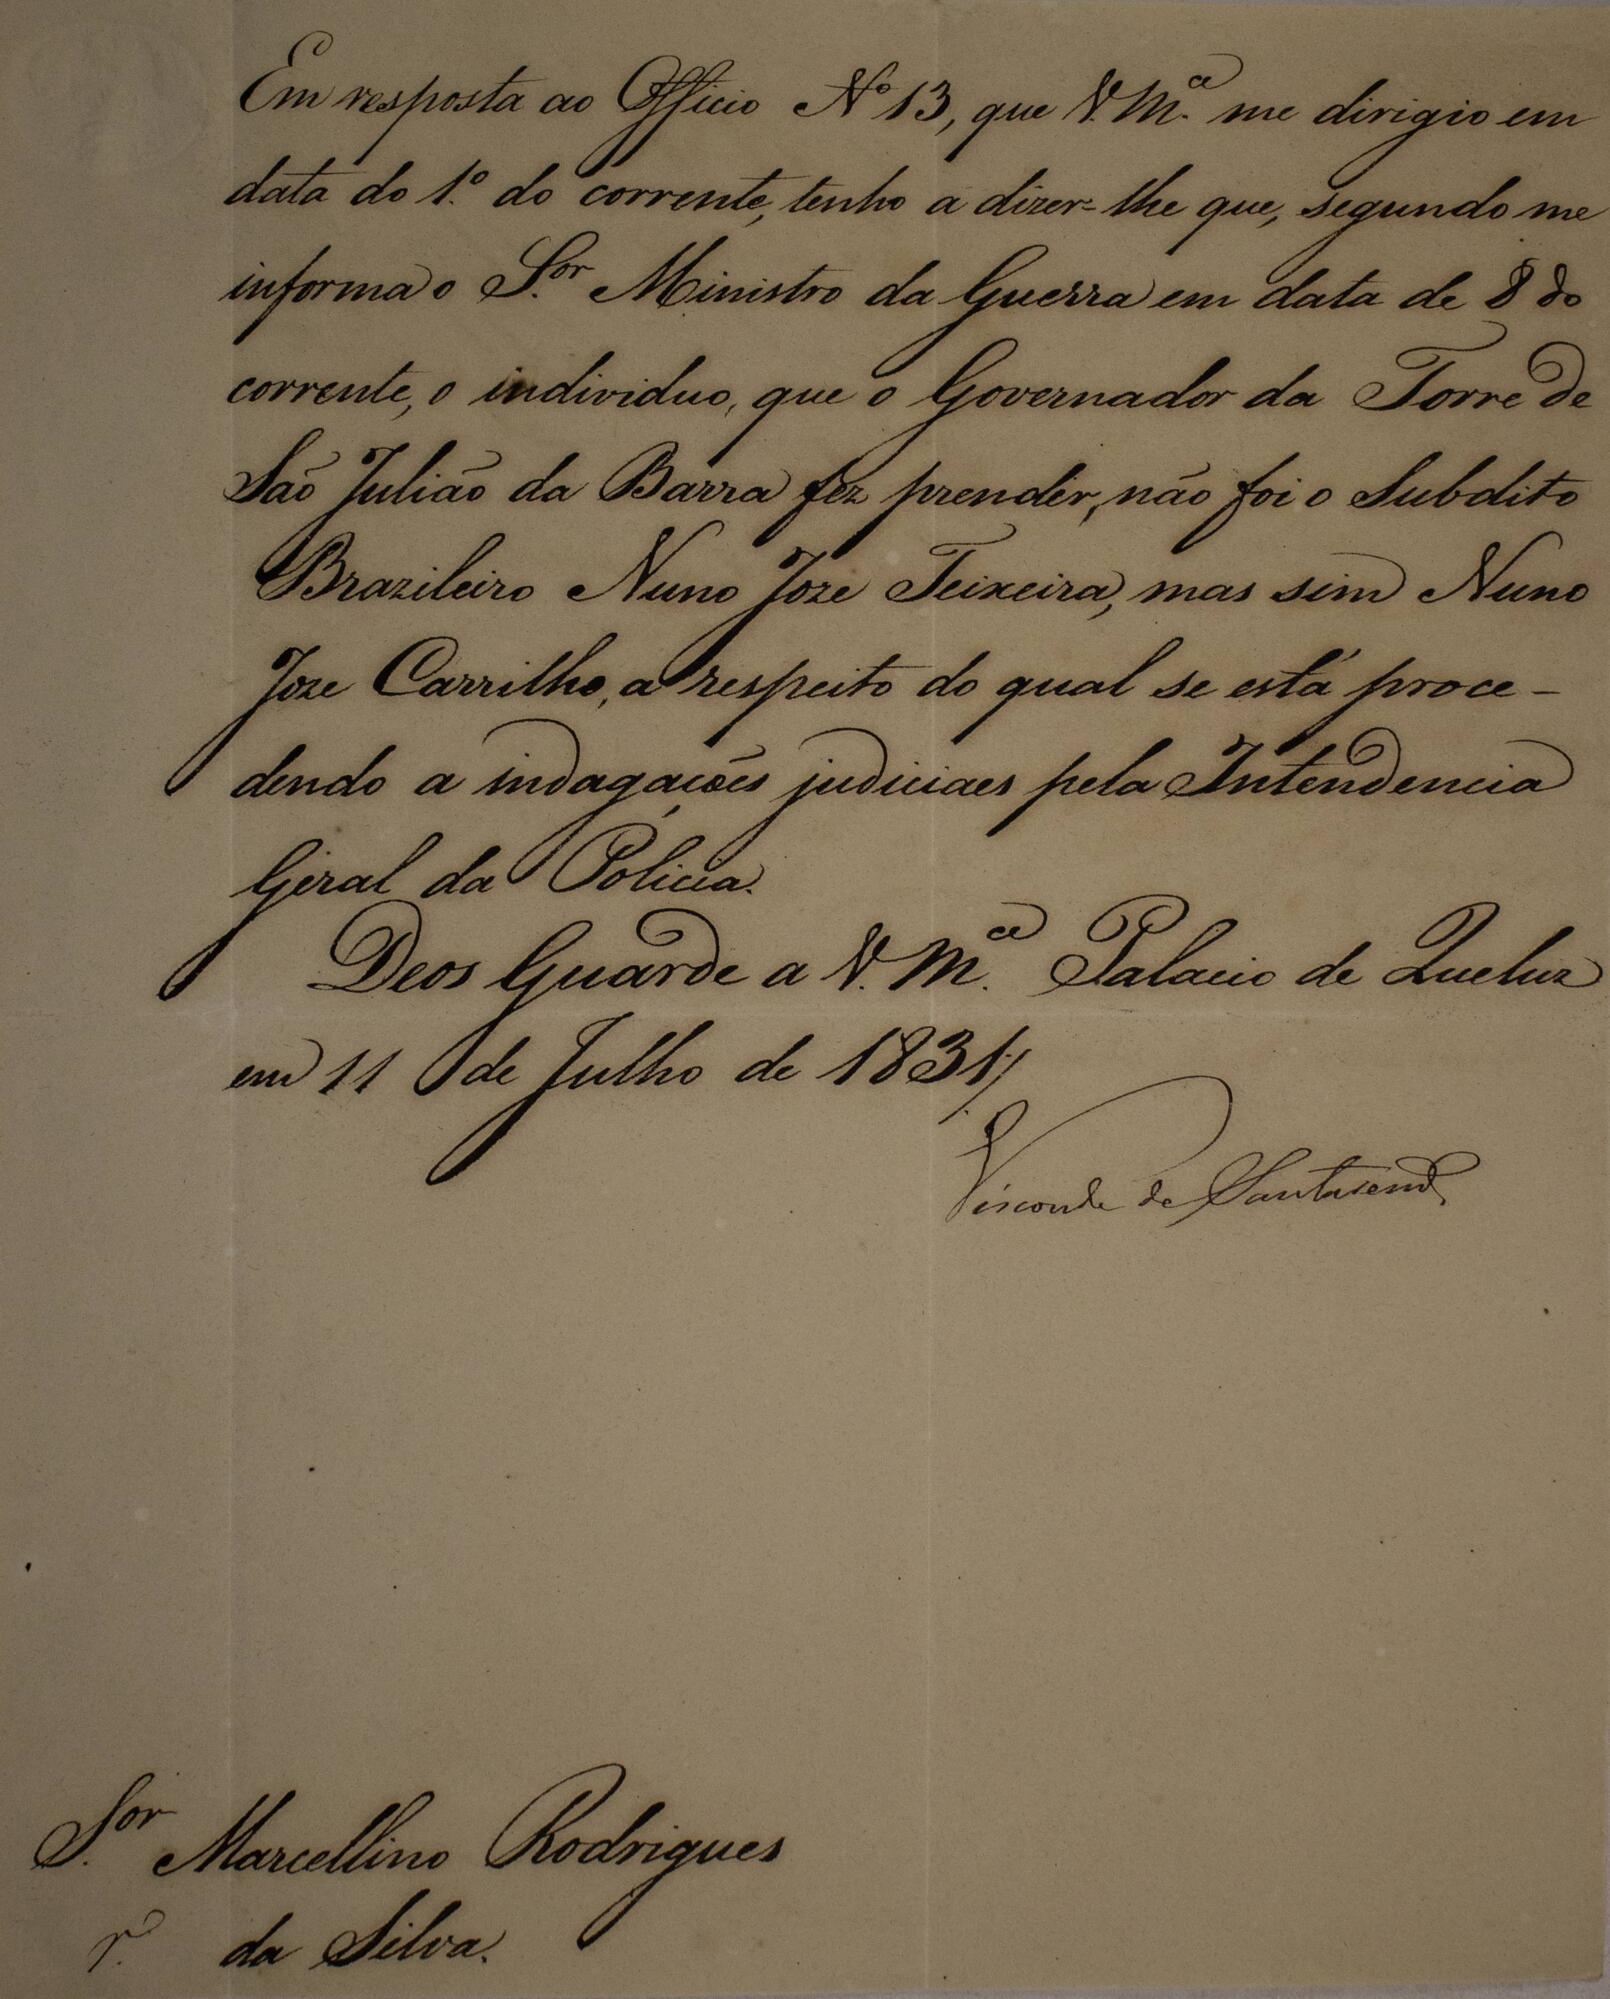 Em resposta ao Officio Nº 13, que V. M.ce me dirigio em
data do 1.º do corrente, tenho a dizer-lhe que, segundo me
informa o S.or Ministro da Guerra em data de 8 do
corrente, o individuo, que o Governador da Torre de
São Julião da Barra fez prender, não foi o Subdito
Brazileiro Nuno Joze Teixeira, mas sim Nuno
Joze Carrilho, a respeito do qual se está proce-
dendo a indagações judiciaes pela Intendencia
Geral da Policia.
Deos Guarde a V. M.ce Palacio de Queluz
em 11 de Julho de 1831
Visconde de Santarem
S.or Marcellino Rodrigues
da Silva.